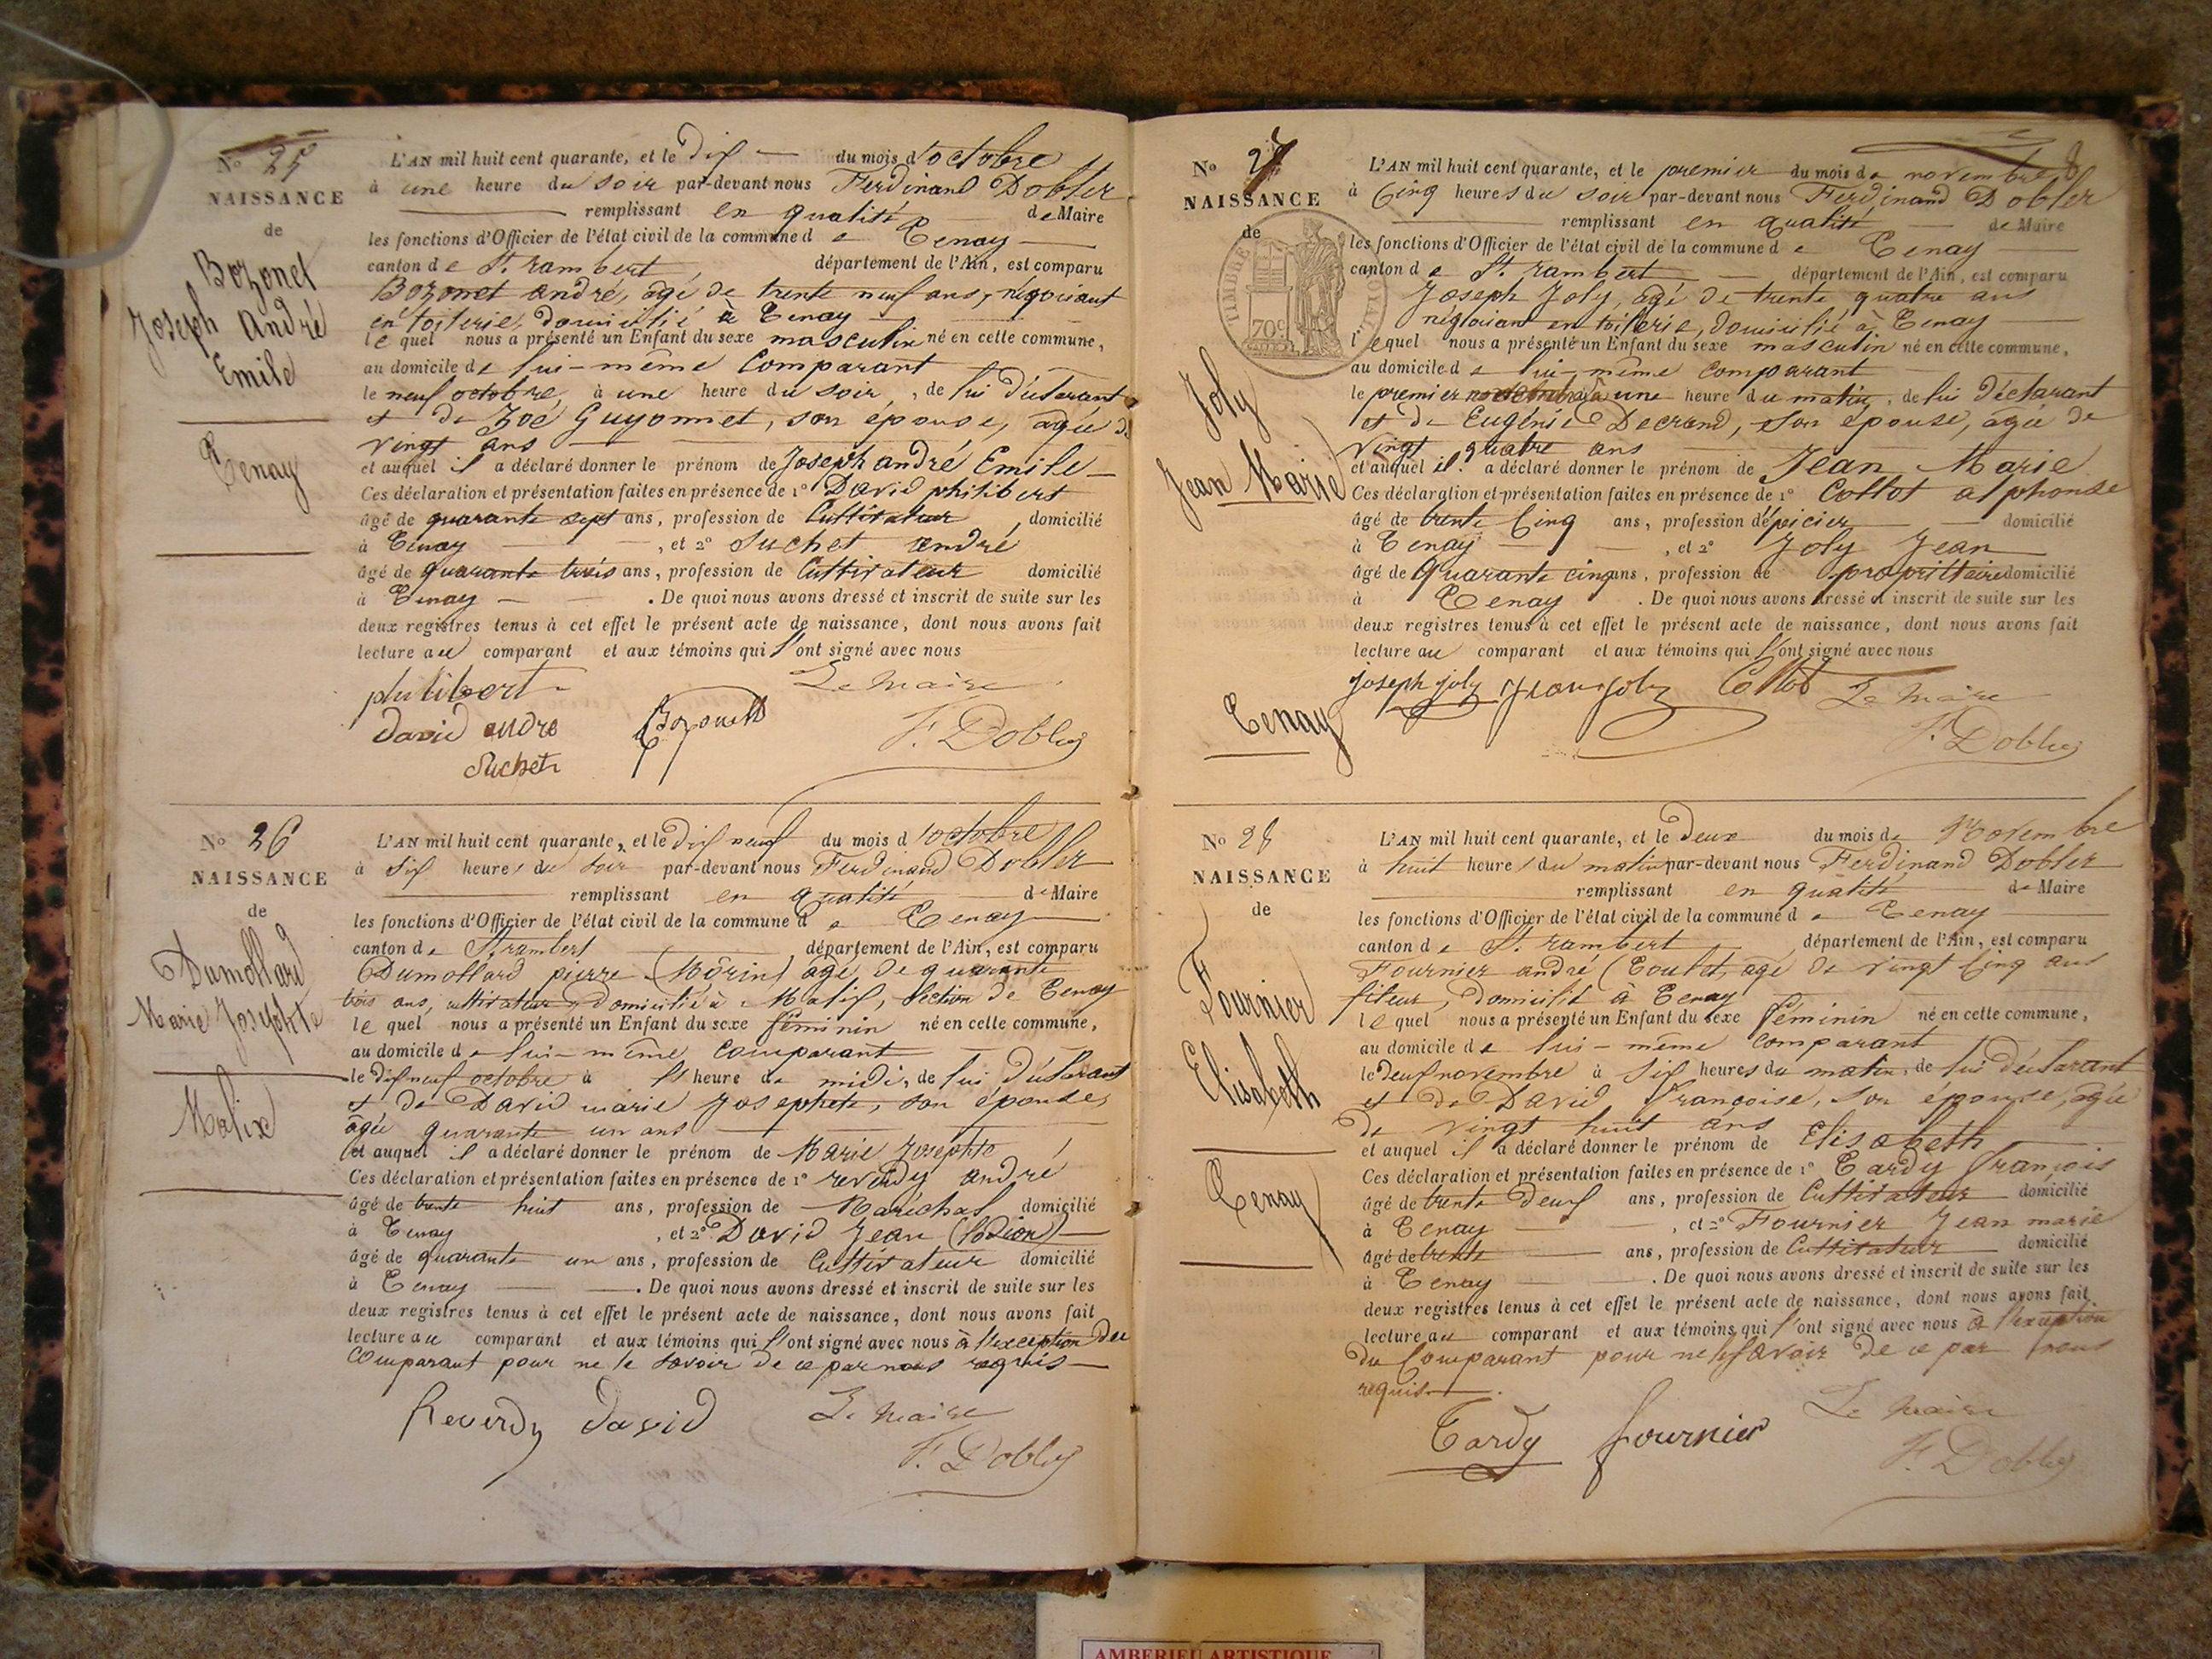 N° 25
NAISSANCE
de
Bozonet
Joseph André
Emile
Tenay
L'AN mil huit cent quarante, et le Dix du mois d'octobre
à une heure du soir par-devant nous Ferdinand Dobler
remplissant en qualité de Maire
les fonctions d'Officier de l'état civil de la commune de Tenay
canton de St. rambert département de l'Ain, est comparu
Bozonet andré, âgé de trente neuf ans, négociant
en toilerie, domicilié à Tenay
lequel nous a présenté un Enfant du sexe masculin né en cette commune,
au domicile de lui-même Comparant
le neuf octobre, à une heure du soir, de lui déclarant
et de Zoé Guyonnet, son épouse, âgée de
vingt ans
et auquel il a déclaré donner le prénom de Joseph andré Emile
Ces déclaration et présentation faites en présence de 1° David philibert
âgé de quarante sept ans, profession de Cultivateur, domicilié
à Tenay, et 2° Suchet andré
âgé de quarante trois ans, profession de Cultivateur domicilié
à Tenay. De quoi nous avons dressé et inscrit de suite sur les
deux registres tenus à cet effet le présent acte de naissance, dont nous avons fait
lecture au comparant et aux témoins qui l'ont signé avec nous
philibert Le Maire
David andré Bozonet F. Dobler
Suchet
N° 26
NAISSANCE
de
Dumollard
Marie Josephte
Malix
L'AN mil huit cent quarante, et le Dix neuf du mois d'octobre
à Six heures du soir par-devant nous Ferdinand Dobler
remplissant en qualité de Maire
les fonctions d'Officier de l'état civil de la commune de Tenay
canton de St. rambert département de l'Ain, est comparu
Dumollard pierre (Môrin) âgé de quarante
trois ans, cultivateur, domicilié à Malix, Section de Tenay
lequel nous a présenté un Enfant du sexe féminin né en cette commune,
au domicile de lui-même Comparant
le Dix neuf octobre à l'heure de midi, de lui déclarant
et de David marie Josephte, son épouse,
âgée quarante un ans
et auquel il a déclaré donner le prénom de Marie Josephte
Ces déclaration et présentation faites en présence de 1° reverdy andré
âgé de trente huit ans, profession de Maréchal domicilié
à Tenay, et 2° David Jean
âgé de quarante un ans, profession de Cultivateur domicilié
à Tenay. De quoi nous avons dressé et inscrit de suite sur les
deux registres tenus à cet effet le présent acte de naissance, dont nous avons fait
lecture au comparant et aux témoins qui l'ont signé avec nous à l'exception du
Comparant pour ne le savoir de ce par nous requis
Reverdy David Le Maire
F. Dobler
N° 27
NAISSANCE
de
TIMBRE ROYAL
70c
Joly
Jean Marie
Tenay
8
L'AN mil huit cent quarante, et le premier du mois de novembre
à Cinq heures du soir par-devant nous Ferdinand Dobler
remplissant en qualité de Maire
les fonctions d'Officier de l'état civil de la commune de Tenay
canton de St. rambert département de l'Ain, est comparu
Joseph Joly, âgé de trente quatre ans
négociant en toilerie, domicilié à Tenay
lequel nous a présenté un Enfant du sexe masculin né en cette commune,
au domicile de lui-même Comparant
le premier novembre à une heure du matin, de lui déclarant
et de Eugénie Decrand, son épouse, âgée de
vingt quatre ans
et auquel il a déclaré donner le prénom de Jean Marie
Ces déclaration et présentation faites en présence de 1° Collot alphonse
âgé de trente Cinq ans, profession d'épicier domicilié
à Tenay, et 2° Joly Jean
âgé de Quarante cinq ans, profession de propriétaire domicilié
à Tenay. De quoi nous avons dressé et inscrit de suite sur les
deux registres tenus à cet effet le présent acte de naissance, dont nous avons fait
lecture au comparant et aux témoins qui l'ont signé avec nous
joseph joly jean joly Collot Le Maire
F. Dobler
N° 28
NAISSANCE
de
Fournier
Elisabeth
Tenay
L'AN mil huit cent quarante, et le Deux du mois de Novembre
à huit heures du matin par-devant nous Ferdinand Dobler
remplissant en qualité de Maire
les fonctions d'Officier de l'état civil de la commune de Tenay
canton de St. rambert département de l'Ain, est comparu
Fournier andré (Toulet, âgé de vingt Cinq ans
fileur, domicilié à Tenay
lequel nous a présenté un Enfant du sexe féminin né en cette commune,
au domicile de lui-même Comparant
le deux novembre à Six heures du matin, de lui déclarant
et de David françoise, son épouse, âgée
de vingt huit ans
et auquel il a déclaré donner le prénom de Elisabeth
Ces déclaration et présentation faites en présence de 1° Tardy françois
âgé de trente Deux ans, profession de Cultivateur domicilié
à Tenay, et 2° Fournier Jean marie
âgé de trente ans, profession de Cultivateur domicilié
à Tenay. De quoi nous avons dressé et inscrit de suite sur les
deux registres tenus à cet effet le présent acte de naissance, dont nous avons fait
lecture au comparant et aux témoins qui l'ont signé avec nous à l'exception
du Comparant pour ne le savoir de ce par nous
requis.
Tardy fournier Le Maire
F. Dobler
AMBERIEU ARTISTIQUE